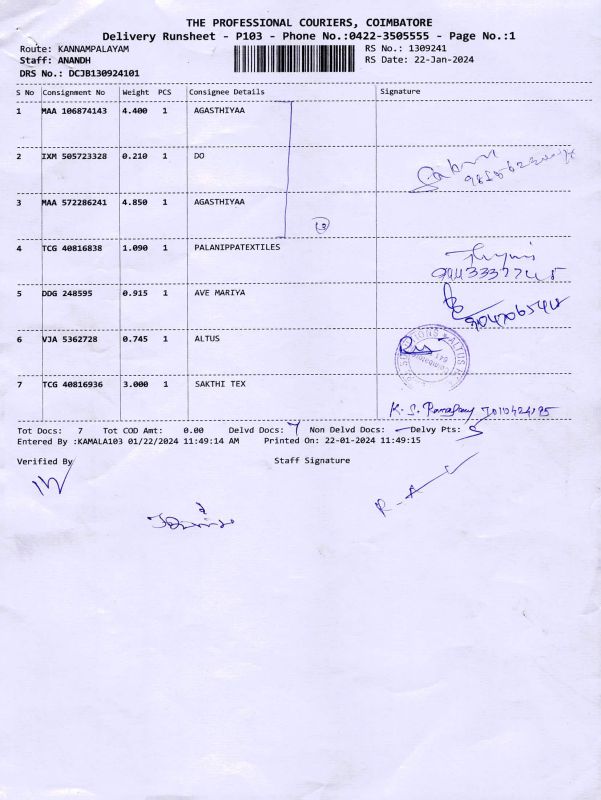 THE PROFESSIONAL COURIERS, COIMBATORE
Delivery Runsheet - P103 - Phone No.:0422-3505555 - Page No.:1
Route: KANNAMPALAYAM RS No.: 1309241
Staff: ANANDH RS Date: 22-Jan-2024
DRS No.: DCJB130924101
S No Consignment No Weight PCS Consignee Details Signature
1 MAA 106874143 4.400 1 AGASTHIYAA
2 IXM 505723328 0.210 1 DO
3 MAA 572286241 4.850 1 AGASTHIYAA
4 TCG 40816838 1.090 1 PALANIPPATEXTILES
5 DDG 248595 0.915 1 AVE MARIYA
6 VJA 5362728 0.745 1 ALTUS
7 TCG 40816936 3.000 1 SAKTHI TEX
Tot Docs: 7 Tot COD Amt: 0.00 Delvd Docs: 7 Non Delvd Docs: — Delvy Pts: 5
Entered By :KAMALA103 01/22/2024 11:49:14 AM Printed On: 22-01-2024 11:49:15
Verified By Staff Signature